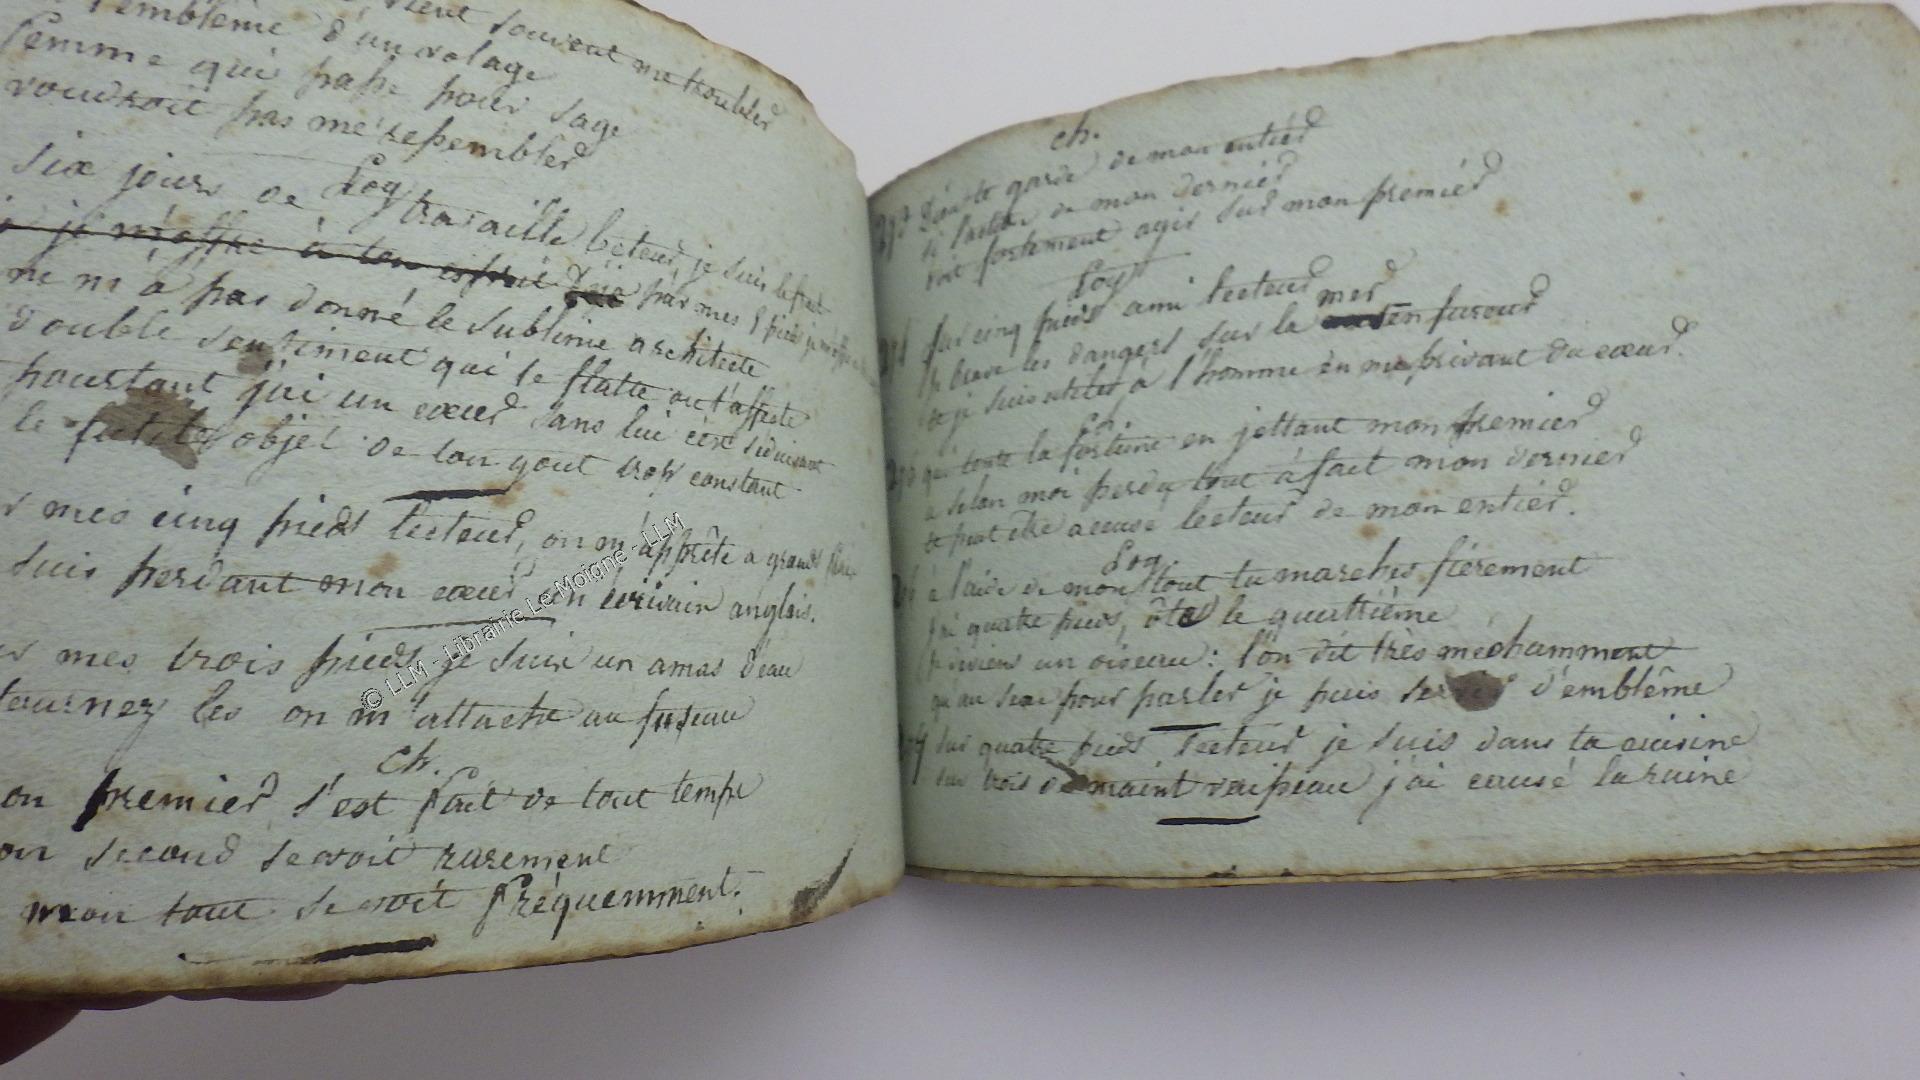 vient souvent me troubler
l'emblême d'un volage
femme qui passe pour sage
voudroit pas me ressembler
Log
six jours de travaille lecteur, je suis l'effet
je m'offre à ton esprit déjà par mes 8 pieds
ne m'a pas donné le sublime architecte
double sentiment qui le flatte ou l'affecte
pourtant j'ai un cœur sans lui c'est séduisant
le futile objet de ton gout trop constant
mes cinq pieds lecteur, on m'apprête a grands
suis perdant mon cœur un écrivain anglais.
mes trois pieds je suis un amas d'eau
tournez les on m'attache au fuseau
ch.
on premier s'est fait de tout temps
on second se voit rarement
mon tout se voit fréquemment.
© LLM - Librairie Le Moigne - LLM
ch.
293 Dieu te garde de mon entier
si l'action de mon dernier
voit fortement agir sur mon premier
Log
sur cinq pieds ami lecteur
je brave les dangers sur la mer en fureur
et je suis utile à l'homme en me privant du cœur.
ch
qui tente la fortune en jettant mon premier
a selon moi perdu tout à fait mon dernier
et peut être accusé lecteur de mon entier.
Log
à l'aide de mon tout tu marches fièrement
j'ai quatre pieds, ôtes le quattième
je deviens un oiseau: l'on dit très méchamment
qu'au sexe pour parler je puis servir d'emblême
sur quatre pieds lecteur je suis dans ta cuisine
sur trois de maint vaisseau j'ai causé la ruine